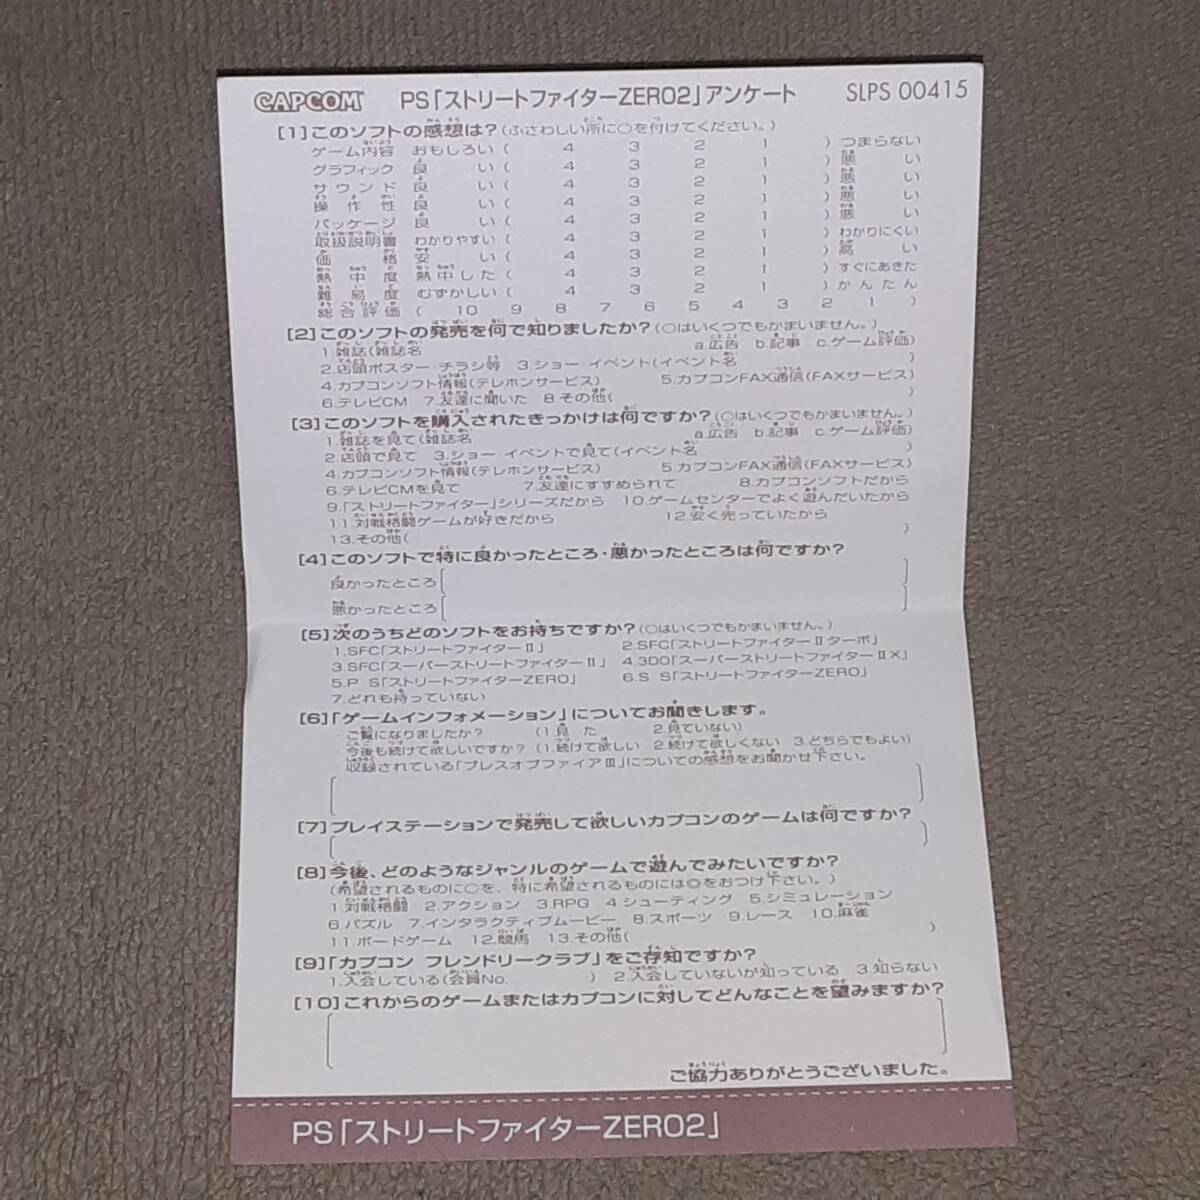 CAPCOM PS「ストリートファイターZERO2」アンケート SLPS 00415
[1]このソフトの感想は?(ふさわしい所に○を付けてください。)
ゲーム内容 おもしろい( 4 3 2 1 )つまらない
グラフィック 良い( 4 3 2 1 )悪い
サウンド 良い( 4 3 2 1 )悪い
操作性 良い( 4 3 2 1 )悪い
パッケージ 良い( 4 3 2 1 )悪い
取扱説明書 わかりやすい( 4 3 2 1 )わかりにくい
価格 安い( 4 3 2 1 )高い
熱中度 熱中した( 4 3 2 1 )すぐにあきた
難易度 むずかしい( 4 3 2 1 )かんたん
総合評価( 10 9 8 7 6 5 4 3 2 1 )
[2]このソフトの発売を何で知りましたか?(○はいくつでもかまいません。)
1.雑誌(雑誌名 a.広告 b.記事 c.ゲーム評価)
2.店頭ポスター・チラシ等 3.ショー・イベント(イベント名 )
4.カプコンソフト情報(テレホンサービス) 5.カプコンFAX通信(FAXサービス)
6.テレビCM 7.友達に聞いた 8.その他( )
[3]このソフトを購入されたきっかけは何ですか?(○はいくつでもかまいません。)
1.雑誌を見て(雑誌名 a.広告 b.記事 c.ゲーム評価)
2.店頭で見て 3.ショー・イベントで見て(イベント名 )
4.カプコンソフト情報(テレホンサービス) 5.カプコンFAX通信(FAXサービス)
6.テレビCMを見て 7.友達にすすめられて 8.カプコンソフトだから
9.「ストリートファイター」シリーズだから 10.ゲームセンターでよく遊んだいたから
11.対戦格闘ゲームが好きだから 12.安く売っていたから
13.その他( )
[4]このソフトで特に良かったところ・悪かったところは何ですか?
良かったところ
悪かったところ
[5]次のうちどのソフトをお持ちですか?(○はいくつでもかまいません。)
1.SFC「ストリートファイターⅡ」 2.SFC「ストリートファイターⅡターボ」
3.SFC「スーパーストリートファイターⅡ」 4.3DO「スーパーストリートファイターⅡX」
5.PS「ストリートファイターZERO」 6.SS「ストリートファイターZERO」
7.どれも持っていない
[6]「ゲームインフォメーション」についてお聞きします。
・ご覧になりましたか? (1.見た 2.見ていない)
・今後も続けて欲しいですか? (1.続けて欲しい 2.続けて欲しくない 3.どちらでもよい)
・収録されている「ブレスオブファイアⅢ」についての感想をお聞かせ下さい。
[7]プレイステーションで発売して欲しいカプコンのゲームは何ですか?
[8]今後、どのようなジャンルのゲームで遊んでみたいですか?
(希望されるものに○を、特に希望されるものには◎をおつけ下さい。)
1.対戦格闘 2.アクション 3.RPG 4.シューティング 5.シミュレーション
6.パズル 7.インタラクティブムービー 8.スポーツ 9.レース 10.麻雀
11.ボードゲーム 12.競馬 13.その他( )
[9]「カプコン フレンドリークラブ」をご存知ですか?
1.入会している(会員No. ) 2.入会していないが知っている 3.知らない
[10]これからのゲームまたはカプコンに対してどんなことを望みますか?
ご協力ありがとうございました。
PS「ストリートファイターZERO2」